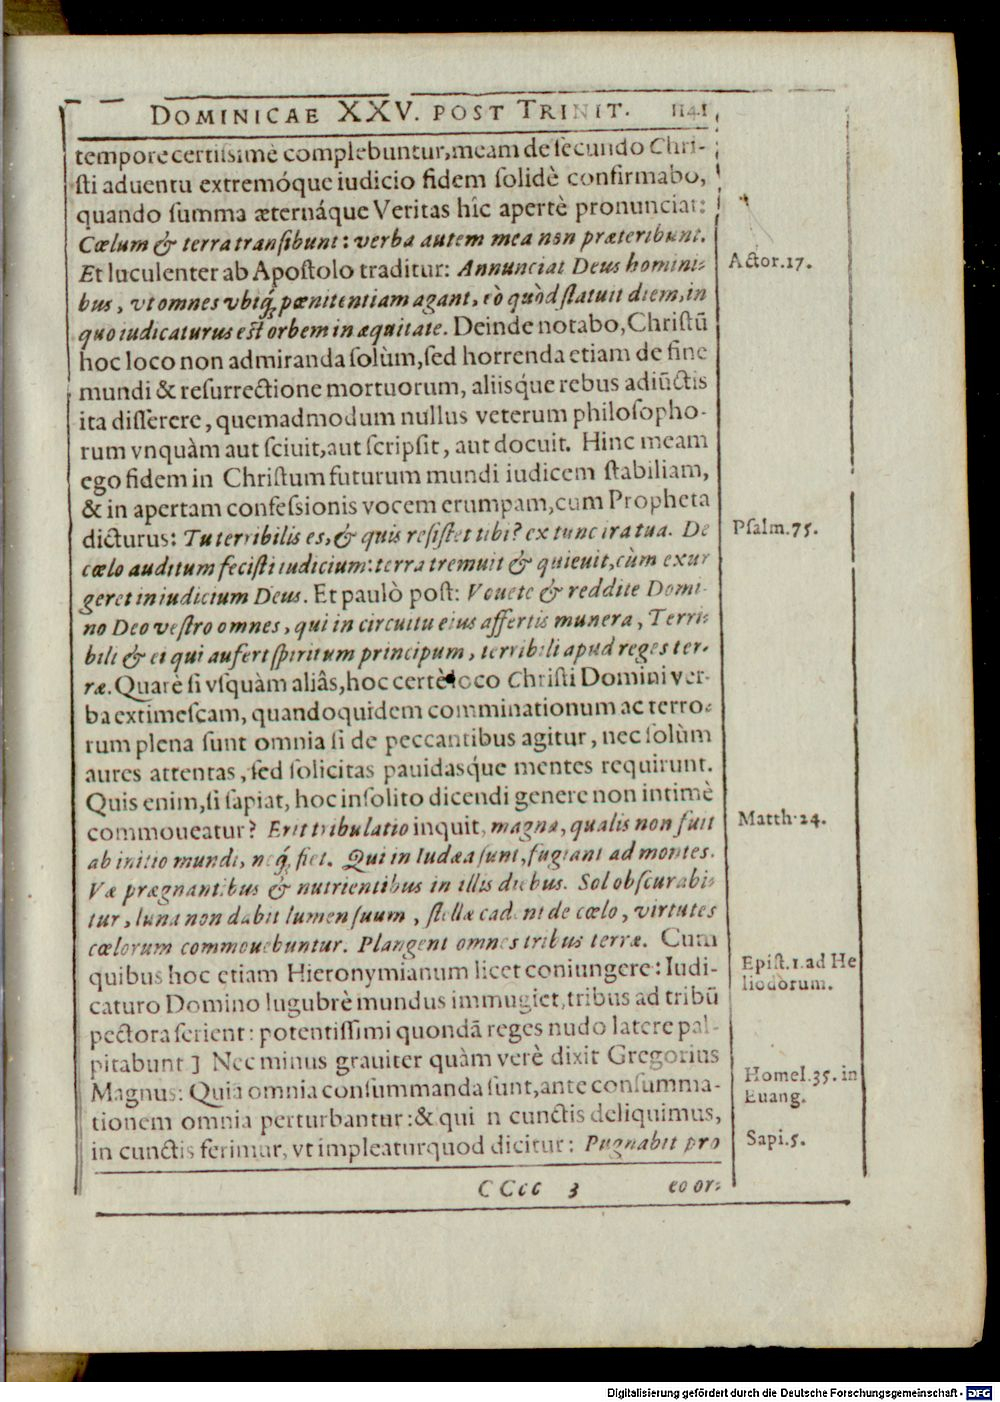 DOMINICAE XXV. POST TRINIT. 1141
tempore certissimè complebuntur, meam de secundo Chri-
sti aduentu extremóque iudicio fidem solidè confirmabo,
quando summa æternáque Veritas hîc apertè pronunciat:
Cœlum & terra transibunt: verba autem mea non præteribunt.
Et luculenter ab Apostolo traditur: Annunciat Deus homini-
bus, vt omnes vbiq́; pænitentiam agant, eò quòd statuit diem, in
quo iudicaturus est orbem in æquitate. Deinde notabo, Christū
hoc loco non admiranda solùm, sed horrenda etiam de fine
mundi & resurrectione mortuorum, aliisque rebus adiūctis
ita disserere, quemadmodum nullus veterum philosopho-
rum vnquàm aut sciuit, aut scripsit, aut docuit. Hinc meam
ego fidem in Christum futurum mundi iudicem stabiliam,
& in apertam confessionis vocem erumpam, cum Propheta
dicturus: Tu terribilis es, & quis resistet tibi? ex tunc ira tua. De
cœlo auditum fecisti iudicium: terra tremuit & quieuit, cùm exur
geret in iudicium Deus. Et paulò post: Vouete & reddite Domi-
no Deo vestro omnes, qui in circuitu eius affertis munera, Terri-
bili & ei qui aufert spiritum principum, terribili apud reges ter-
ræ. Quarè si vsquàm aliâs, hoc certè loco Christi Domini ver-
ba extimescam, quandoquidem comminationum ac terro-
rum plena sunt omnia si de peccantibus agitur, nec solùm
aures attentas, sed solicitas pauidasque mentes requirunt.
Quis enim, si sapiat, hoc insolito dicendi genere non intimè
commoueatur? Erit tribulatio inquit, magna, qualis non fuit
ab initio mundi, neq́; fiet. Qui in Iudæa sunt, fugiant ad montes.
Væ prægnantibus & nutrientibus in illis diebus. Sol obscurabi-
tur, luna non dabit lumen suum, stellæ cadent de cœlo, virtutes
cœlorum commouebuntur. Plangent omnes tribus terræ. Cum
quibus hoc etiam Hieronymianum licet coniungere: Iudi-
caturo Domino lugubrè mundus immugiet, tribus ad tribū
pectora ferient: potentissimi quondā reges nudo latere pal-
pitabunt] Nec minus grauiter quàm verè dixit Gregorius
Magnus: Quia omnia consummanda sunt, ante consumma-
tionem omnia perturbantur: & qui in cunctis deliquimus,
in cunctis ferimur, vt impleatur quod dicitur: Pugnabit pro
CCcc 3 eo or-
Actor. 17.
Psalm. 75.
Matth. 24.
Epist. 1. ad He
liodorum.
Homel. 35. in
Euang.
Sapi. 5.
Digitalisierung gefördert durch die Deutsche Forschungsgemeinschaft - DFG